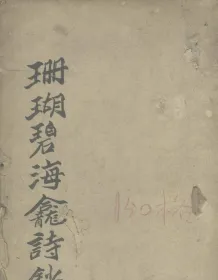 珊瑚碧海龕詩鈔